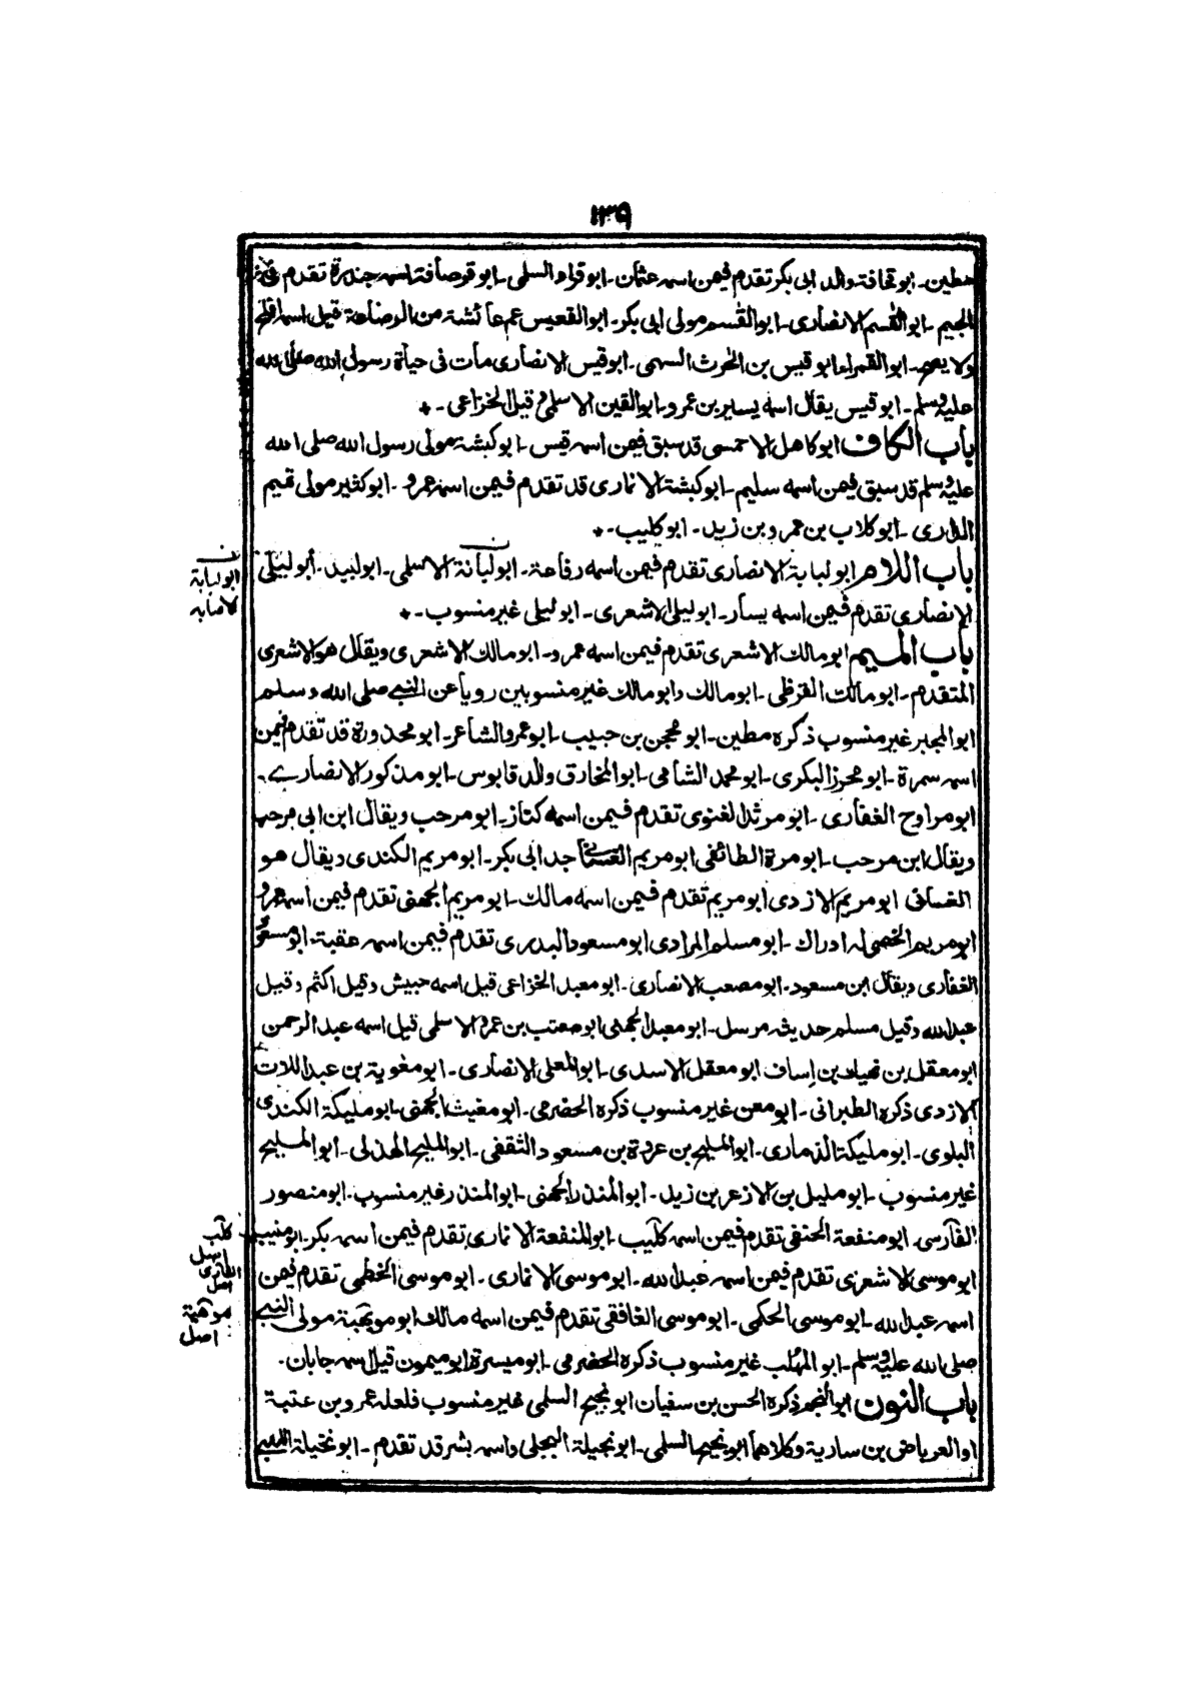 ١٣٩
مطين۔ ابو قحافة والد ابى بكر تقدم فيمن اسمه عثمان۔ ابو قراد السلمى۔ ابو قرصافة اسمه جندرة تقدم فى
الجيم۔ ابو القسم الانصارى۔ ابو القسم مولى ابى بكر۔ ابو القعيس عم عائشة من الرضاعة قيل اسمه افلح
ولا يصح۔ ابو القمراء ابو قيس بن الحرث السهمى۔ ابو قيس الانصارى مات فى حياة رسول الله صلى الله
عليه وسلم۔ ابو قيس يقال اسمه يسير بن عمرو۔ ابو القين الاسلمى وقيل الخزاعى۔*
باب الكاف ابو كاهل الاحمسى قد سبق فيمن اسمه قيس۔ ابو كبشة مولى رسول الله صلى الله
عليه وسلم قد سبق فيمن اسمه سليم۔ ابو كبشة الانمارى قد تقدم فيمن اسمه عمرو۔ ابو كثير مولى تميم
الدارى۔ ابو كلاب بن عمرو بن زيد۔ ابو كليب۔*
باب اللام ابو لبابة الانصارى تقدم فيمن اسمه رفاعة۔ ابو لبانة الاسلمى۔ ابو لبيد۔ أبو لبيلى
ن
ابو لبابة
كاصابه
الانصارى تقدم فيمن اسمه يسار۔ ابو ليلى الاشعرى۔ ابو ليلى غير منسوب۔*
باب الميم ابو مالك الاشعرى تقدم فيمن اسمه عمرو۔ ابو مالك الاشعرى ويقال هو الاشعرى
المتقدم۔ ابو مالك القرظى۔ ابو مالك وابو مالك غير منسوبين رويا عن النبى صلى الله وسلم
ابو المجبر غير منسوب ذكره مطين۔ ابو محجن بن حبيب۔ ابو عمرو الشاعر۔ ابو محذورة قد تقدم فيمن
اسمه سمرة۔ ابو محرز البكرى۔ ابو محمد الشامى۔ ابو المخارق والد قابوس۔ ابو مذكور الانصارى۔
ابو مراوح الغفارى۔ ابو مرثد الغنوى تقدم فيمن اسمه كناز۔ ابو مرحب ويقال ابن ابى مرحب
ويقال ابن مرحب۔ ابو مرة الطائفى ابو مريم الغسانى جد ابى بكر۔ ابو مريم الكندى ويقال هو
الغسانى ابو مريم الازدى ابو مريم تقدم فيمن اسمه مالك۔ ابو مريم الجهنى تقدم فيمن اسمه عمرو
ابو مريم الخصى له ادراك۔ ابو مسلم المرادى ابو مسعود البدرى تقدم فيمن اسمه عقبة۔ ابو مسعود
الغفارى ويقال ابن مسعود۔ ابو مصعب الانصارى۔ ابو معبد الخزاعى قيل اسمه حبيش وقيل اكثم وقيل
عبد الله وقيل مسلم حديثه مرسل۔ ابو معبد الجهنى ابو معتب بن عمرو الاسلمى قيل اسمه عبد الرحمن
ابو معقل بن نهيك بن إساف ابو معقل الاسدى۔ ابو المعلى الانصارى۔ ابو مغوية بن عبد اللات
الازدى ذكره الطبرانى۔ ابو معن غير منسوب ذكره الحضرمى۔ ابو مغيث الجهنى۔ ابو مليكة الكندى
البلوى۔ ابو مليكة الذمارى۔ ابو المليح بن عروة بن مسعود الثقفى۔ ابو المليح الهذلى۔ ابو المليح
غير منسوب۔ ابو مليل بن الازعر بن زيد۔ ابو المنذر الجهنى۔ ابو المنذر غير منسوب۔ ابو منصور
الفارسى۔ ابو منفعة الحنفى تقدم فيمن اسمه كليب۔ ابو المنفعة الانمارى تقدم فيمن اسمه بكر۔ ابو منيب
اصل
ابو موسى الاشعرى تقدم فيمن اسمه عبد الله۔ ابو موسى الانمارى۔ ابو موسى الخطمى تقدم فيمن
اسمه عبد الله۔ ابو موسى الحكمى۔ ابو موسى الغافقى تقدم فيمن اسمه مالك ابو مويهبة مولى النبى
موهبة
اصل
صلى الله عليه وسلم۔ ابو المهلب غير منسوب ذكره الحضرمى۔ ابو ميسرة ابو ميمون قيل اسمه جابان۔
باب النون ابو النجم ذكره الحسن بن سفيان ابو نجيح السلمى غير منسوب فلعله عمرو بن عتبة
او العرباض بن سارية وكلاهما ابو نجيح السلمى۔ ابو نجيلة البجلى واسمه بشر قد تقدم۔ ابو نخيلة